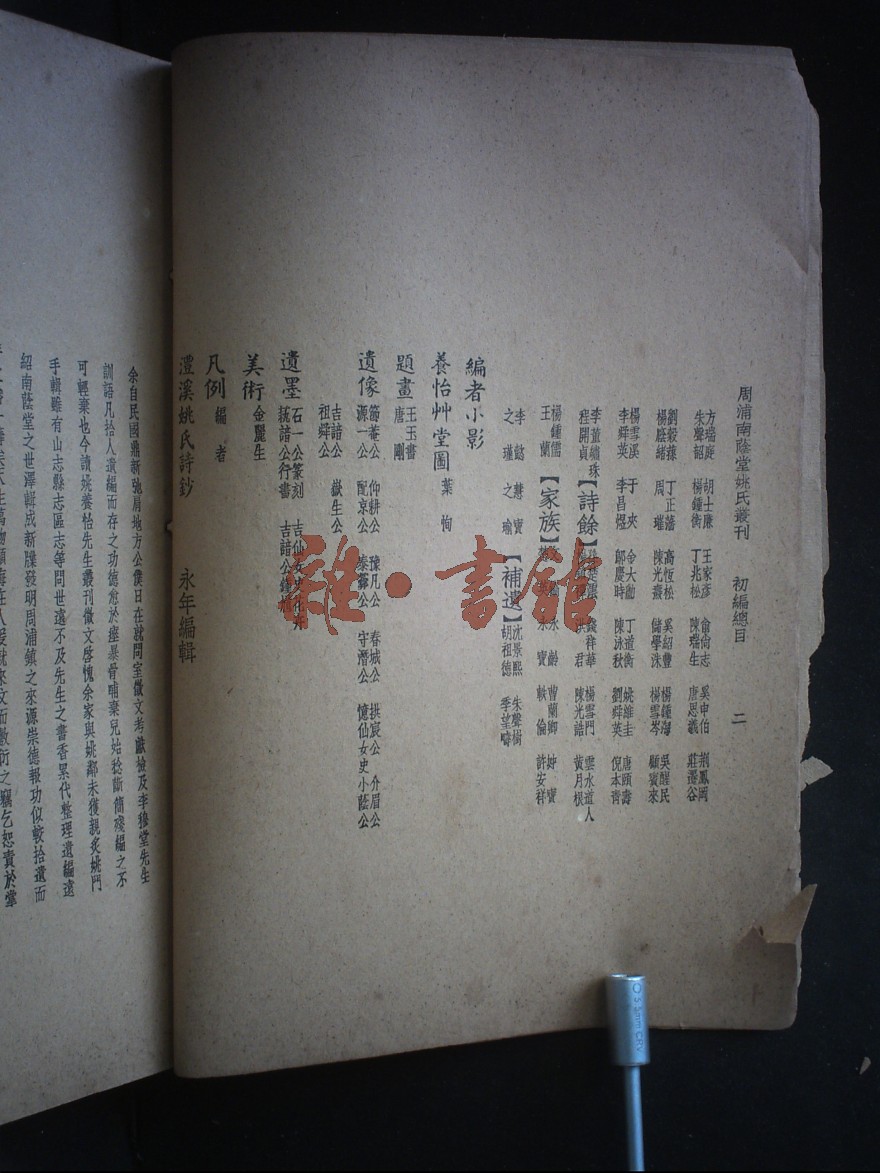 周浦南蔭堂姚氏叢刊 初編總目 二
方瑞 胡士廉 王家彥 俞尚志 奚申伯 荆鳳岡
朱聲韶 楊鍾衡 丁兆松 陳瑞生 唐思 莊 谷
劉毅 丁正藩 高恆松 奚紹豐 楊鍾 吳醒民
楊 緒 周 璀 陳光 儲學洙 楊雪岑 顧賓來
楊雪溪 于 央 金大勳 丁道衡 姚維圭 唐頤壽
李舜英 李昌煜 邱慶時 陳泳秋 劉舜英 倪本青
李董繡珠 【詩餘】 錢祥華 楊雪門 雲水道人
程開貞 洪 君 陳光誥 黃月根
楊鍾儒 【家族】 永 齡 曹蘭卿 坤 寶
王 蘭 永 寶 軼 倫 許安祥
李 懿 慧 寶 【補遺】 沈景熙 朱聲樹
之 瑾 之 瑜 胡祖德 季望疇
編者小影
養怡艸堂圖 葉 恂
題畫 王玉書
唐 剛
遺像 節菴公 仰耕公 豫凡公 春城公 拱宸公 介眉公
源一公 配京公 公 守潛公 憶仙女史小蔭公
吉諳公 嶽生公
祖舜公
遺墨 石一公篆刻 吉仙女史花卉
公行書 吉諳公鐘
美術 金麗生
凡例 編 者
澧溪姚氏詩鈔 永年編輯
余自民國鼎新弛肩地方公僕日在就問室徵文考獻檢及李 堂先生
訓語凡拾人遺編而存之功德愈於瘞暴骨哺棄兒始稔斷簡殘編之不
可輕棄也今讀姚養怡先生叢刊徵文啓愧余家與姚鄰未獲親炙姚門
手輯雖有山志縣志區志等問世遠不及先生之書香累代整理遺編遠
紹南蔭堂之世澤輯成新牒發明周浦鎮之來源崇德報功似較拾遺而